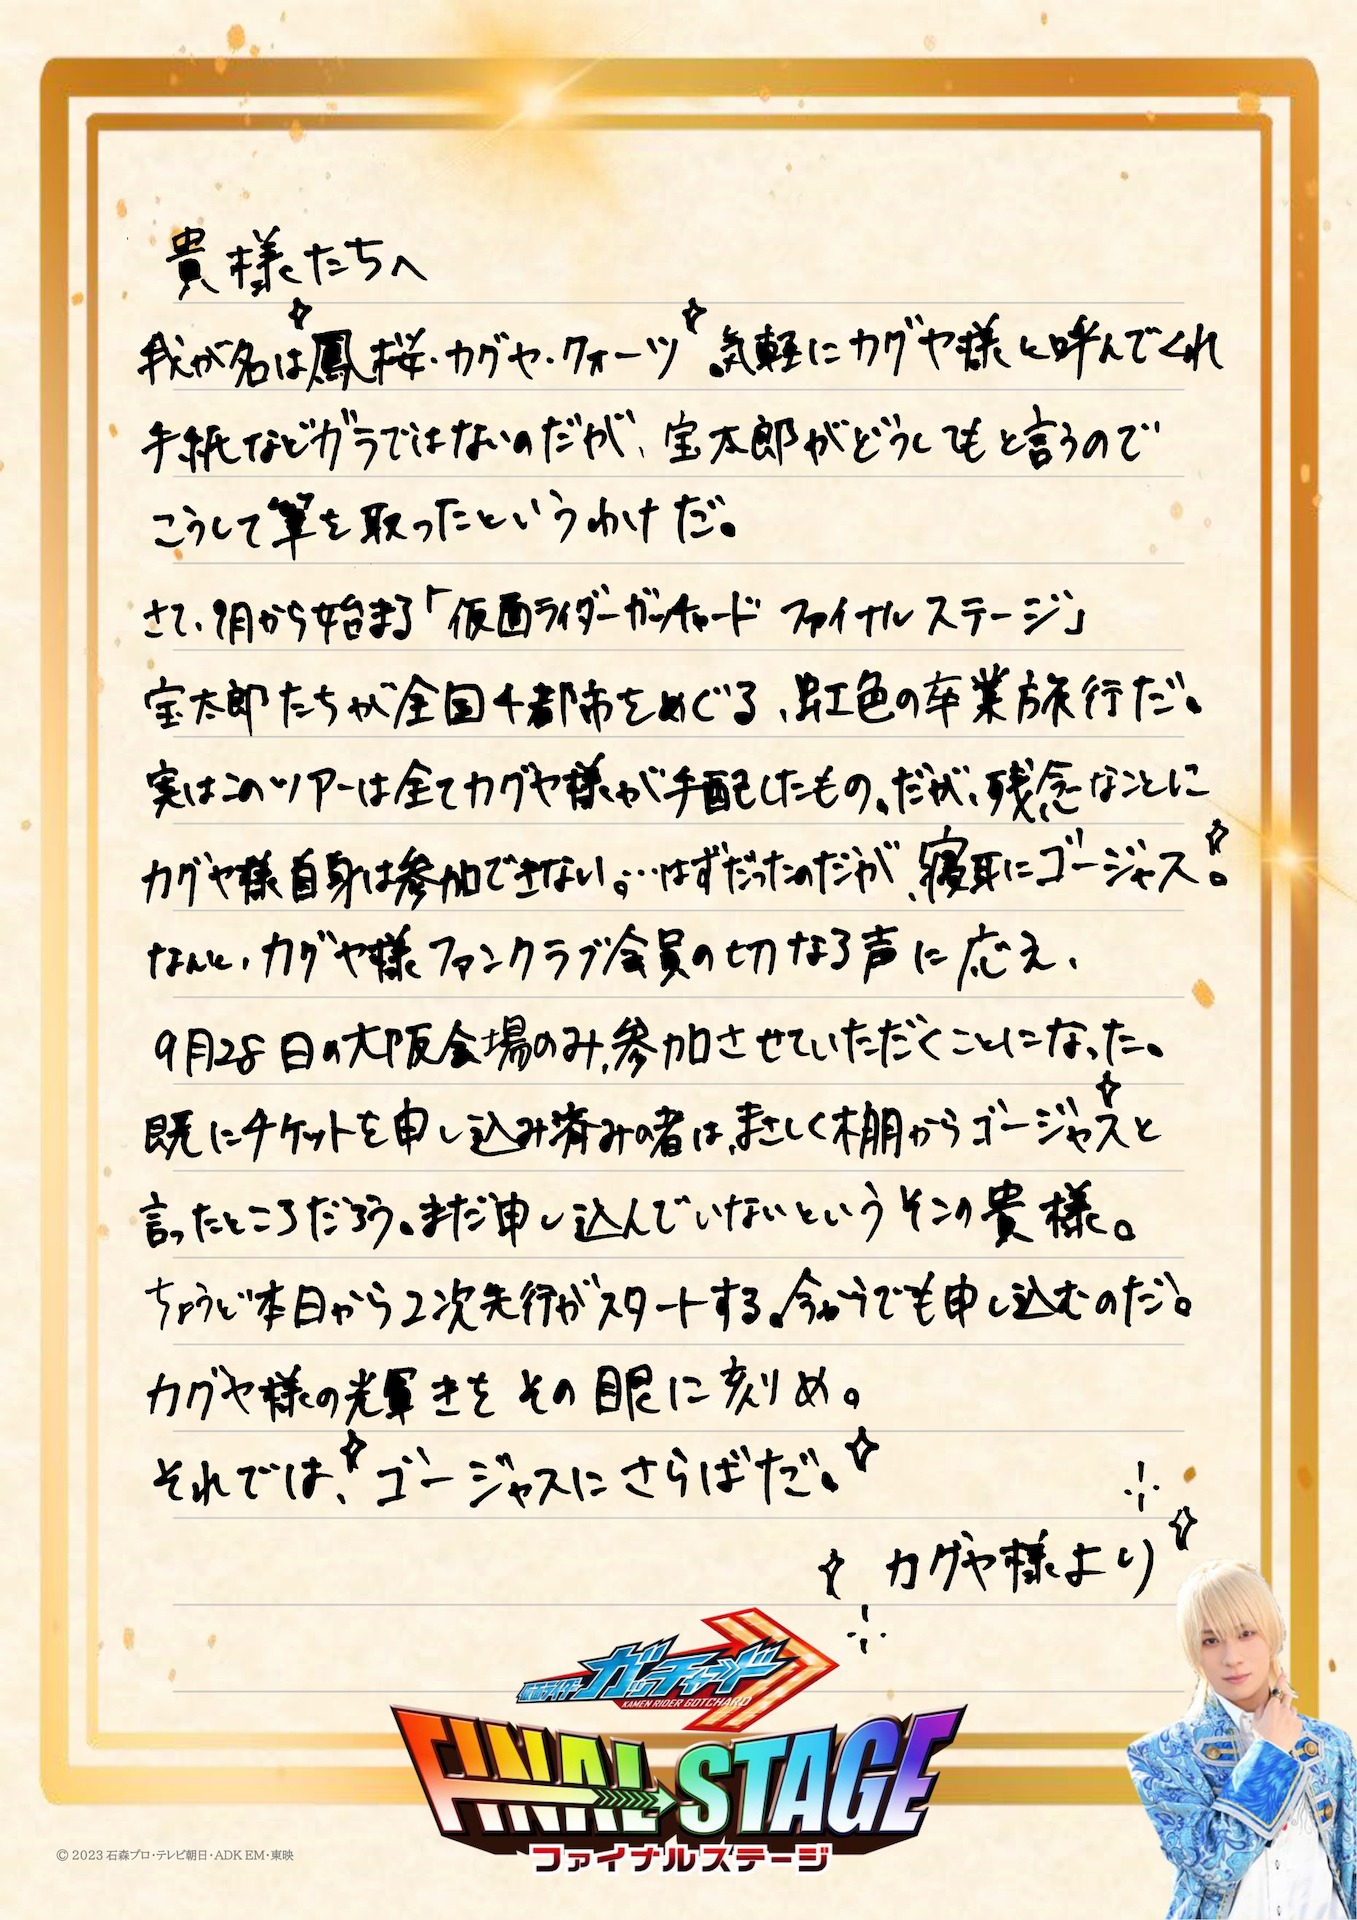 貴様たちへ
我が名は鳳桜・カグヤ・クォーツ。気軽にカグヤ様と呼んでくれ
手紙などガラではないのだが、宝太郎がどうしてもと言うので
こうして筆を取ったというわけだ。
さて、9月から始まる「仮面ライダーガッチャード ファイナルステージ」
宝太郎たちが全国4都市をめぐる、虹色の卒業旅行だ。
実はこのツアーは全てカグヤ様が手配したもの。だが、残念なことに
カグヤ様自身は参加できない。…はずだったのだが、寝耳にゴージャス。
なんと、カグヤ様ファンクラブ会員の切なる声に応え、
9月28日の大阪会場のみ、参加させていただくことになった。
既にチケットを申し込み済みの者は、まさしく棚からゴージャスと
言ったところだろう。まだ申し込んでいないというそこの貴様。
ちょうど本日から2次先行がスタートする。今からでも申し込むのだ。
カグヤ様の光輝きをその眼に刻め。
それでは、ゴージャスにさらばだ。
カグヤ様より
仮面ライダーガッチャード
KAMEN RIDER GOTCHARD
FINAL STAGE
ファイナルステージ
© 2023 石森プロ・テレビ朝日・ADK EM・東映